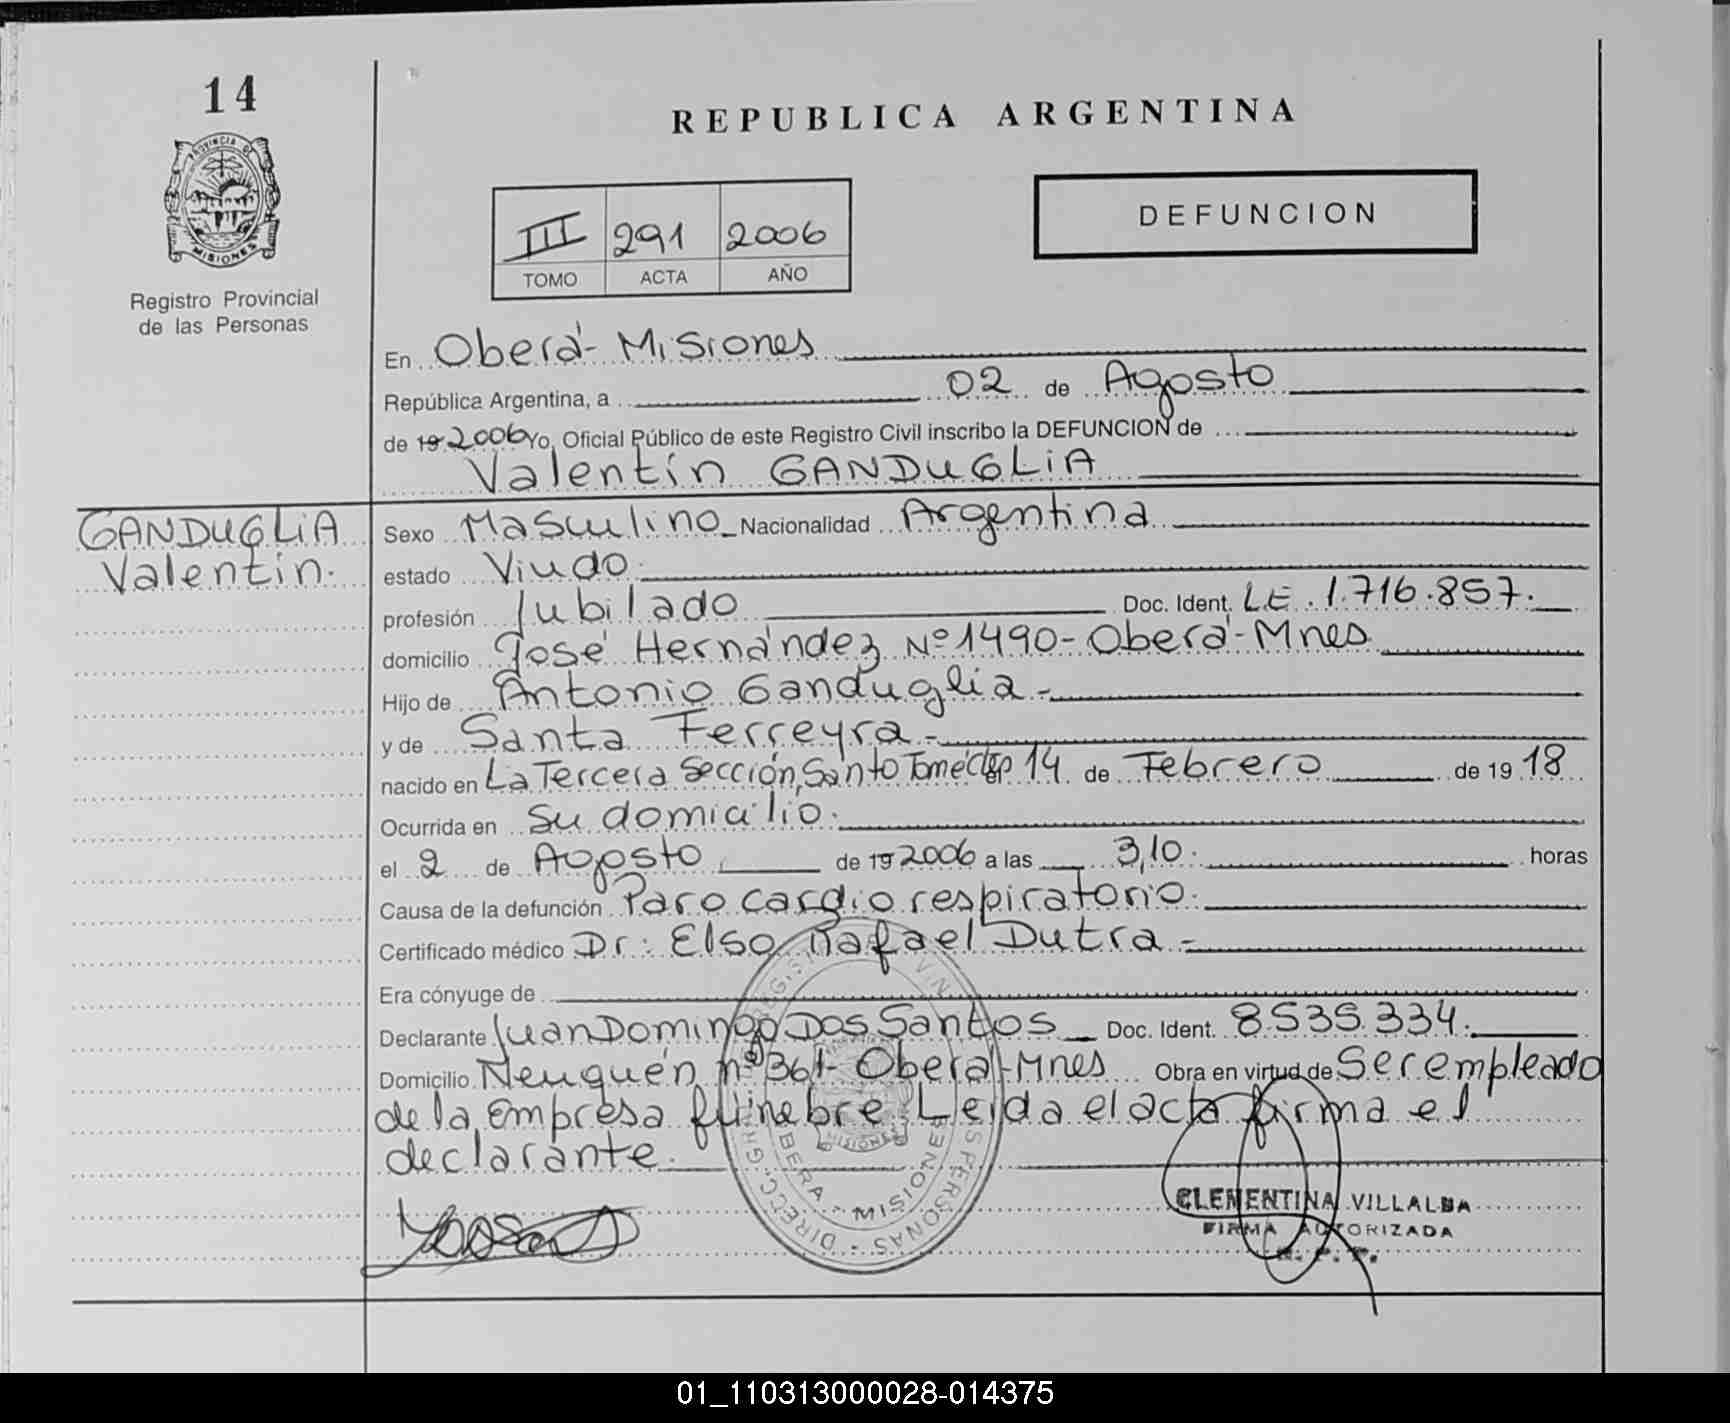 14
PROVINCIA DE
MISIONES
Registro Provincial
de las Personas
REPUBLICA ARGENTINA
III 291 2006
TOMO ACTA AÑO
DEFUNCION
En Oberá- Misiones
República Argentina, a 02 de Agosto
de 19 2006 Yo, Oficial Público de este Registro Civil inscribo la DEFUNCION de
Valentín GANDUGLIA
GANDUGLIA
Valentín.
Sexo Masculino Nacionalidad Argentina
estado Viudo.
profesión Jubilado Doc. Ident. L.E. 1.716.857.
domicilio José Hernández Nº 1490- Oberá- Mnes
Hijo de Antonio Ganduglia-
y de Santa Ferreyra-
nacido en La Tercera Sección, Santo Tomé 14 de Febrero de 19 18
Ocurrida en Su domicilio.
el 2 de Agosto de 19 2006 a las 3,10. horas
Causa de la defunción Paro cardio respiratorio.
Certificado médico Dr.: Elso Rafael Dutra-
Era cónyuge de
Declarante Juan Domingo Dos Santos Doc. Ident. 8.535.334.
Domicilio Neuquén nº 361- Oberá- Mnes Obra en virtud de Ser empleado
de la Empresa fúnebre. Leída el acta firma el
declarante.
MISIONES
CLEMENTINA VILLALBA
FIRMA AUTORIZADA
01_110313000028-014375